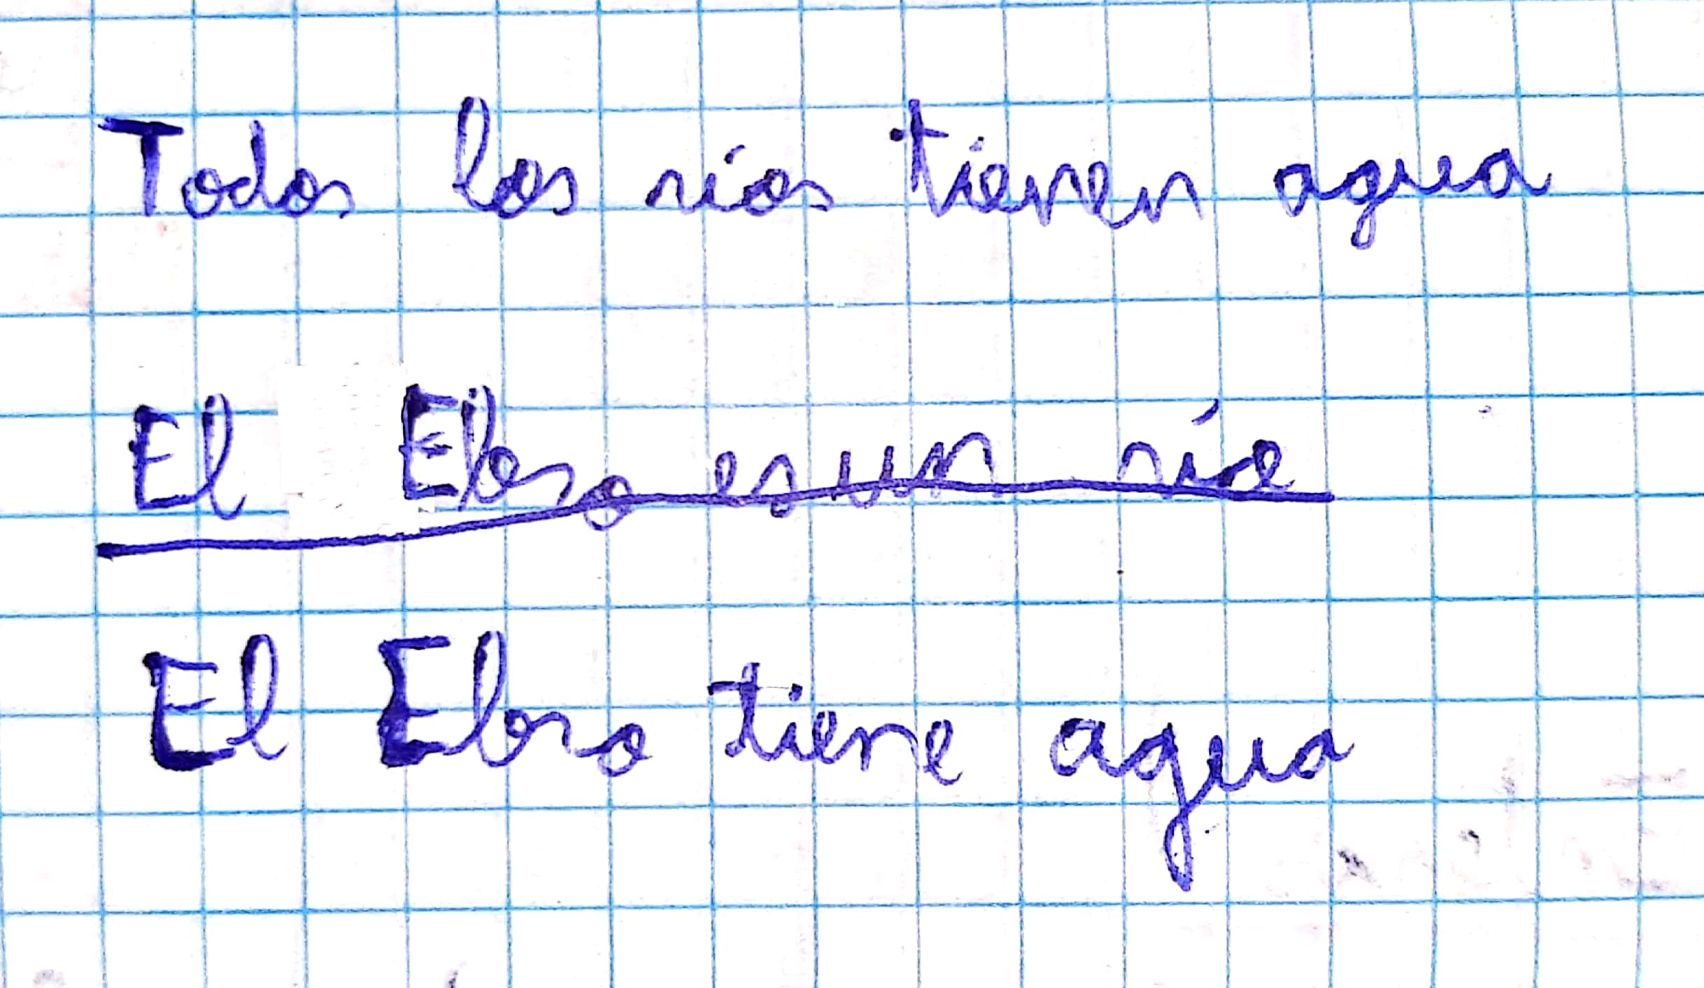 Todos los ríos tienen agua
El Ebro es un río
El Ebro tiene agua